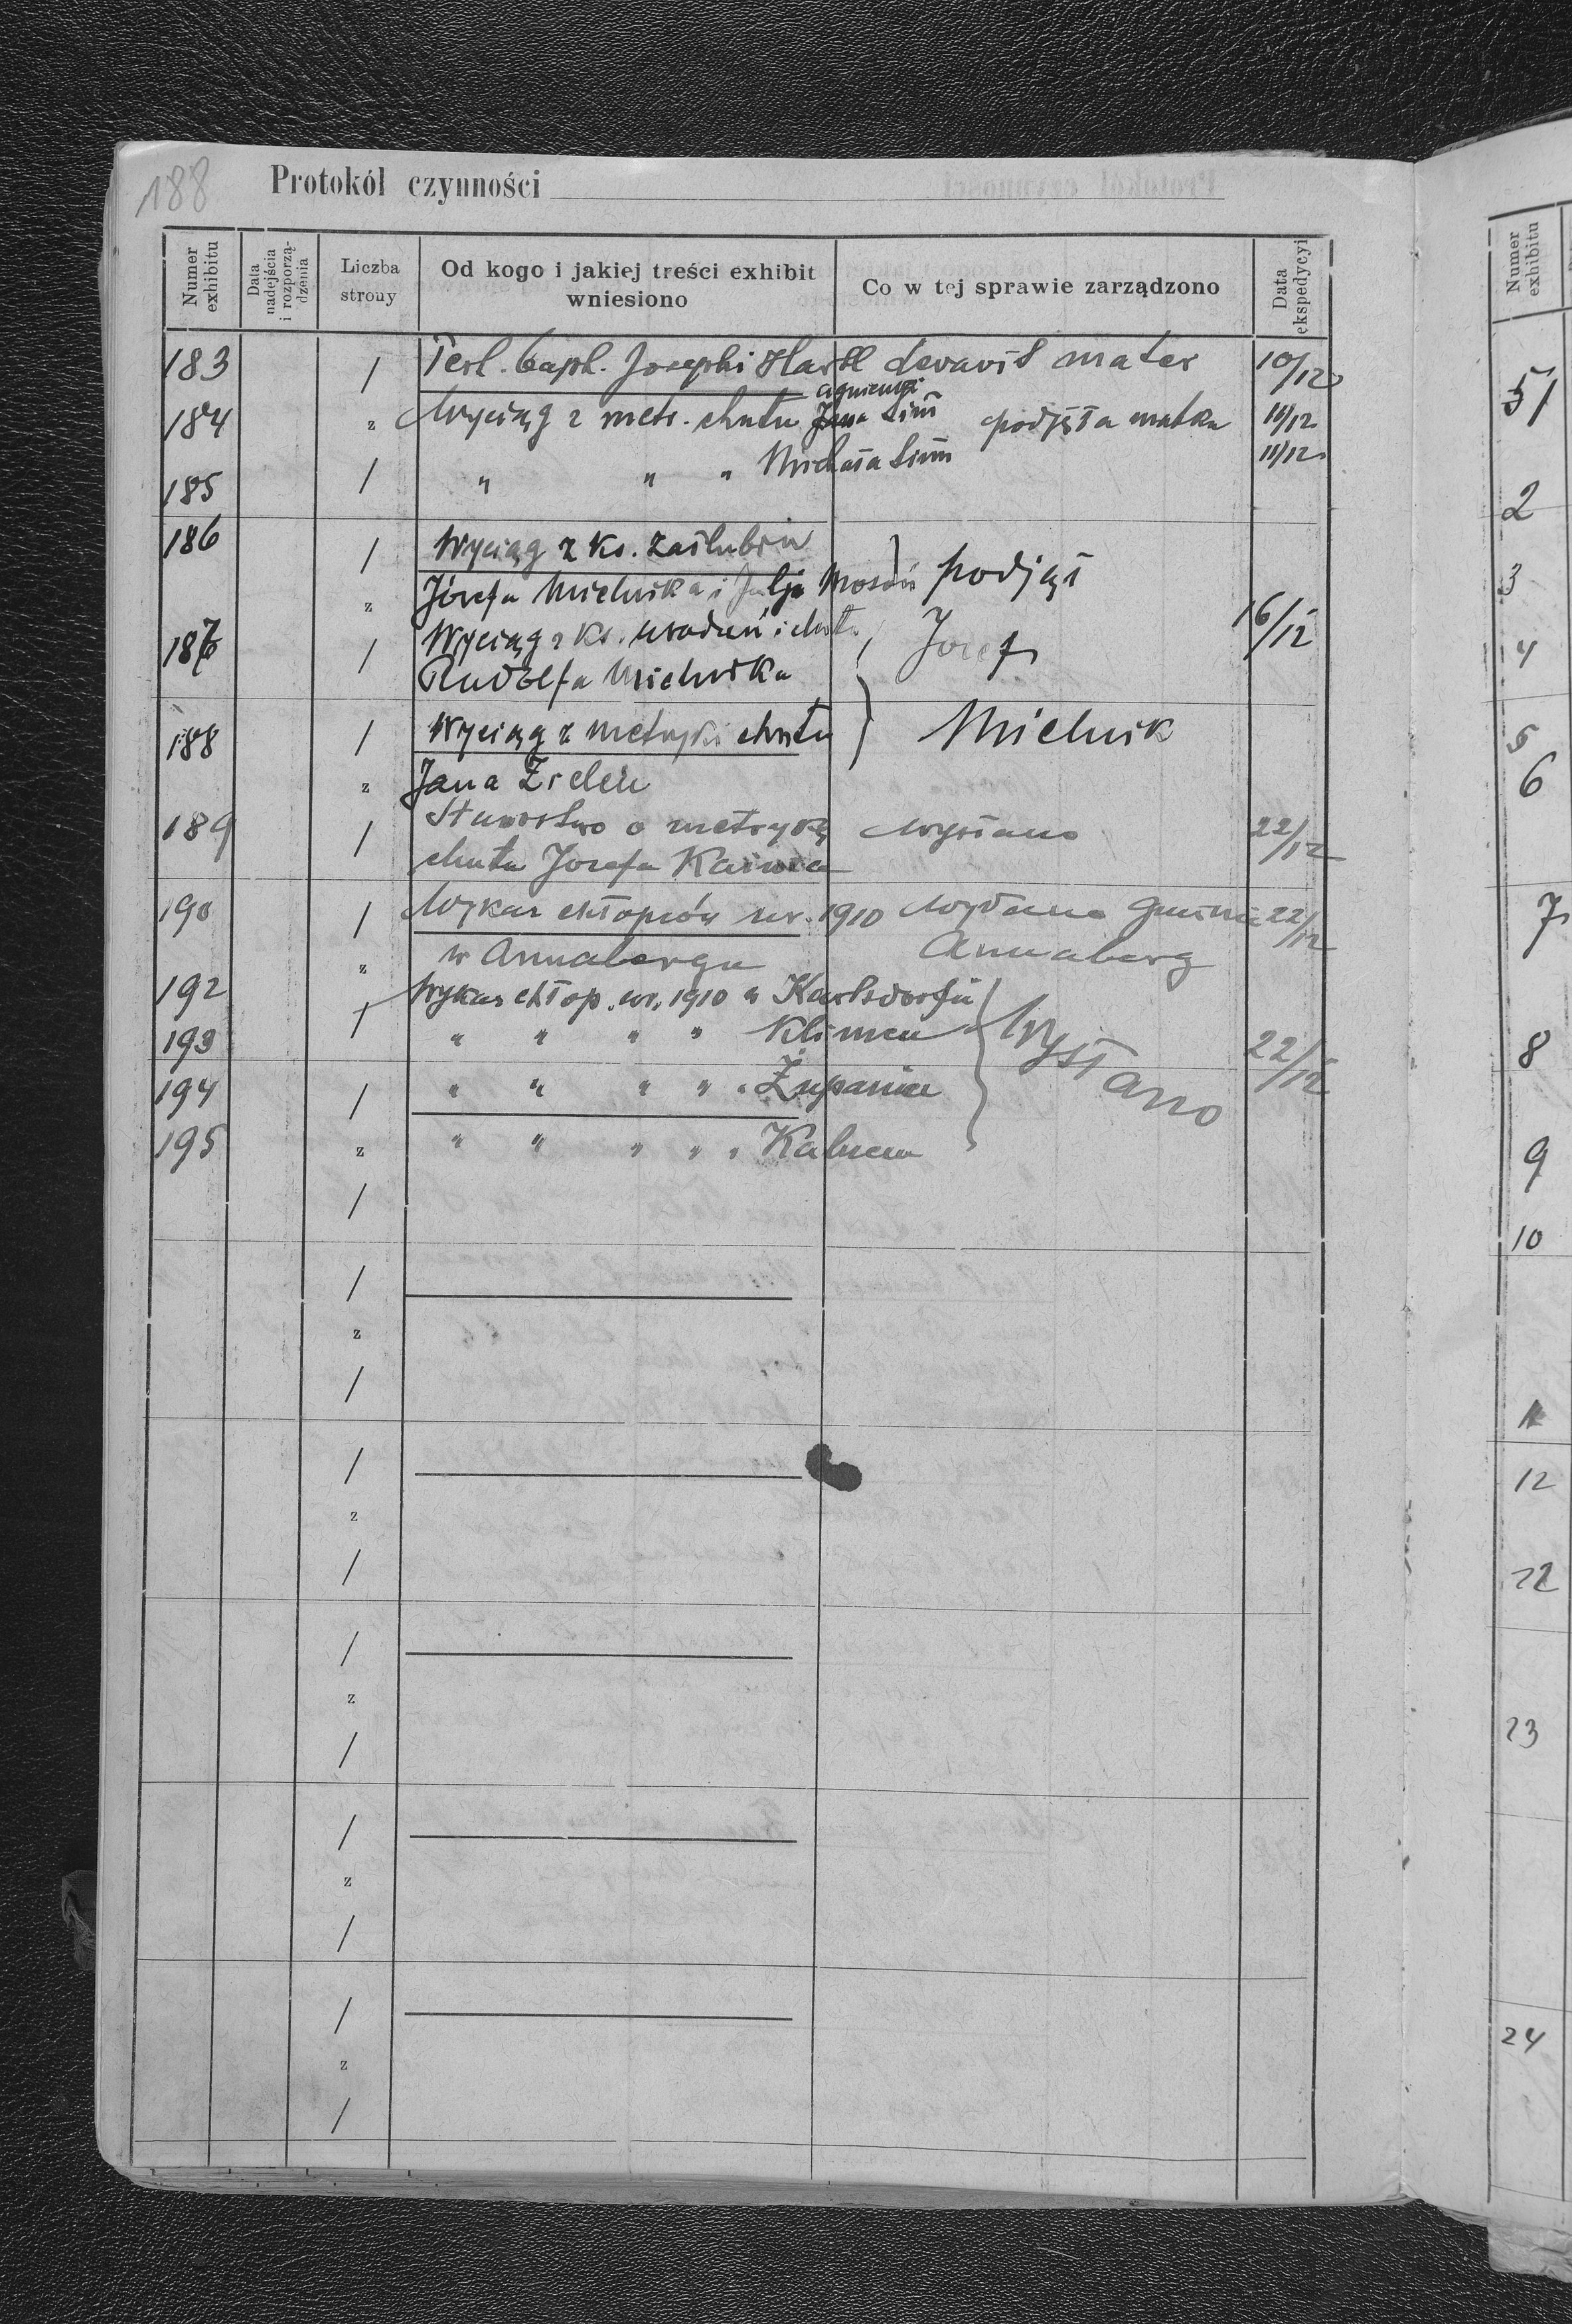 188 Protokół czynności
Numer exhibitu
Data nadejścia i rozporzą-dzenia
Liczba strony
Od kogo i jakiej treści exhibit wniesiono
Co w tej sprawie zarządzono
Data ekspedycyi
183 / Test. bapt. Josephi Hartl levavit mater 10/12
184 z Wyciąg z metr. chrztu Jana podjęła matka 11/12
185 / " " " Michała 11/12
186 / Wyciąg z ks. zaślubin } podjął
z Józefa Mielnika i
187 / Wyciąg z ks. urodzin i chrztu Józef 16/12
Rudolfa Mielnika
188 / Wyciąg z metryki chrztu Mielnik
z Jana Zieleń
189 / Starostwo o metrykę wysłano 22/12
chrztu Jozefa
190 / Wykaz chłopców ur. 1910 wydano gminie 22/12
z w Annabergu Annaberg
192 / Wykaz chłop. ur. 1910 w Karlsdorfie } wysłano 22/12
193 " " " " Klimcu
194 / " " " " " Żupanie
195 z " " " " " Kalnem
/
/
z
/
/
z
/
/
z
/
/
z
/
/
z
/
Numer exhibitu
51
2
3
4
5
6
7
8
9
10
12
22
23
24